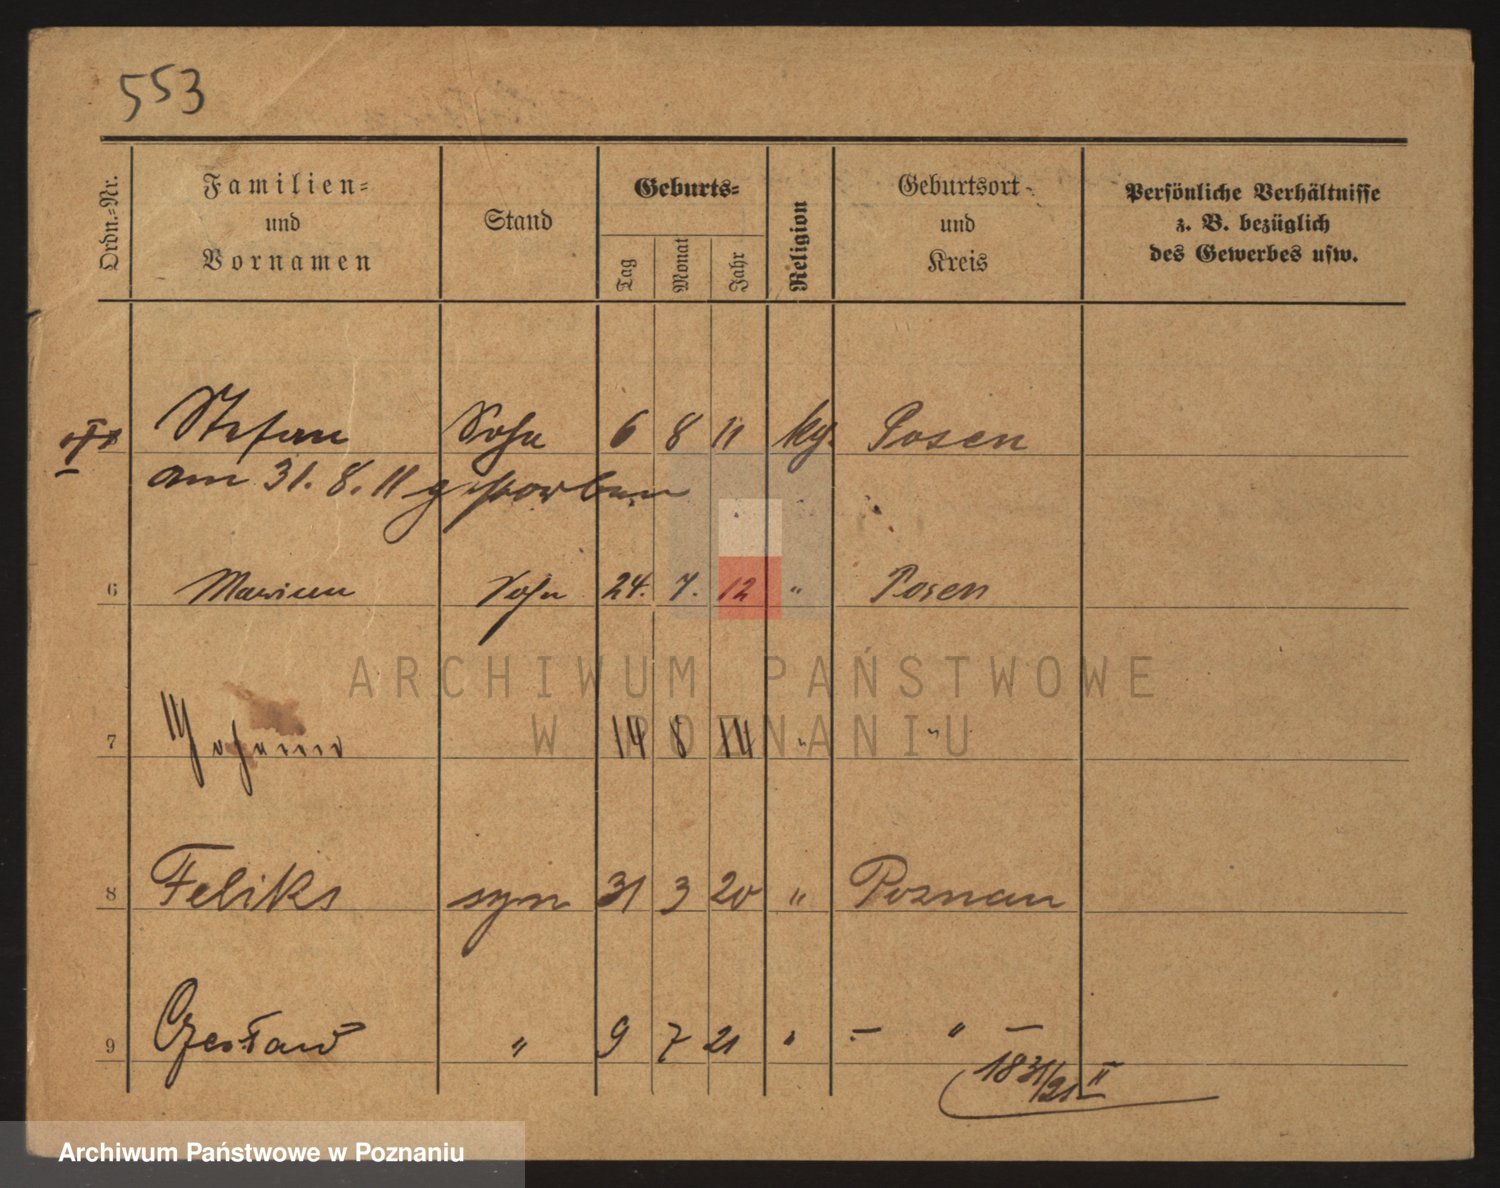 553
Ordn.-Nr.
Familien-
und
Vornamen
Stand
Geburts-
Tag
Monat
Jahr
Religion
Geburtsort
und
Kreis
Persönliche Verhältnisse
z. B. bezüglich
des Gewerbes usw.
Stefan Sohn 6 8 11 Posen
am 31. 8. 11 gestorben
6 Marian Sohn 24. 7. 12 " Posen
ARCHIWUM PAŃSTWOWE
W POZNANIU
7 14 8 14 " "
8 Feliks syn 31 3 20 " Poznan
9 Czesław " 9 7 21 " – " –
1831/21 II
Archiwum Państwowe w Poznaniu